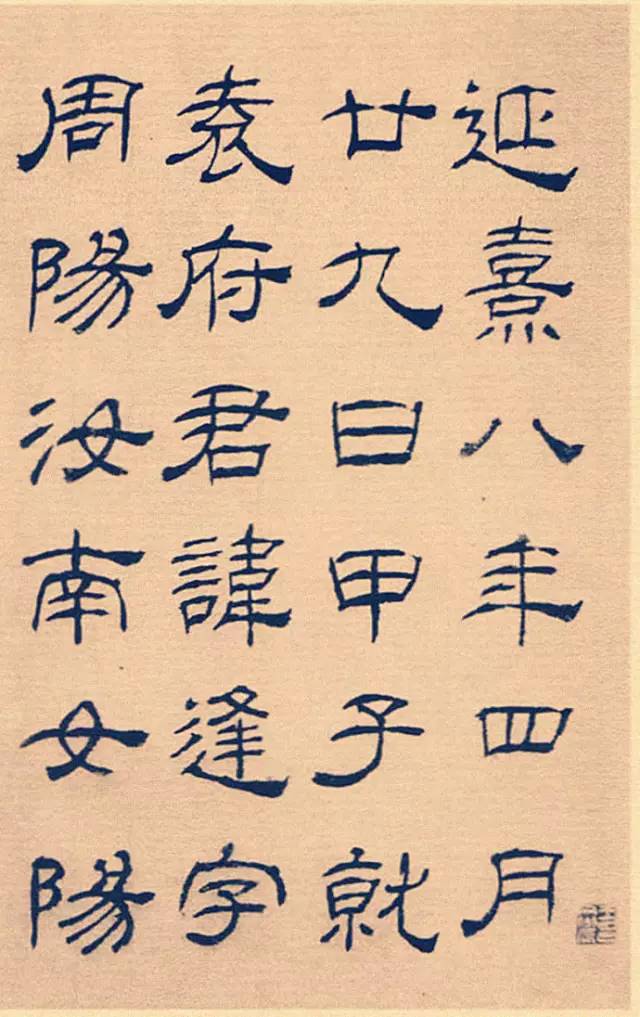 延熹八年四月
廿九日甲子就
袁府君諱逢字
周陽汝南女陽